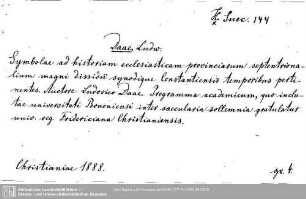 H. Suec. 144
Daae, Ludw.
Symbolae ad historiam ecclesiasticam provinciarum septentriona-
lium magni dissidii synodique Constantiensis temporibus perti-
nentes. Auctore Ludovico Daae. Programma academicum, quo inclu-
tae universitati Bononiensi inter saecularia sollemnia gratulatur
univ. reg. Fridericiana Christianiensis.
Christianiae 1888. gr. 4.